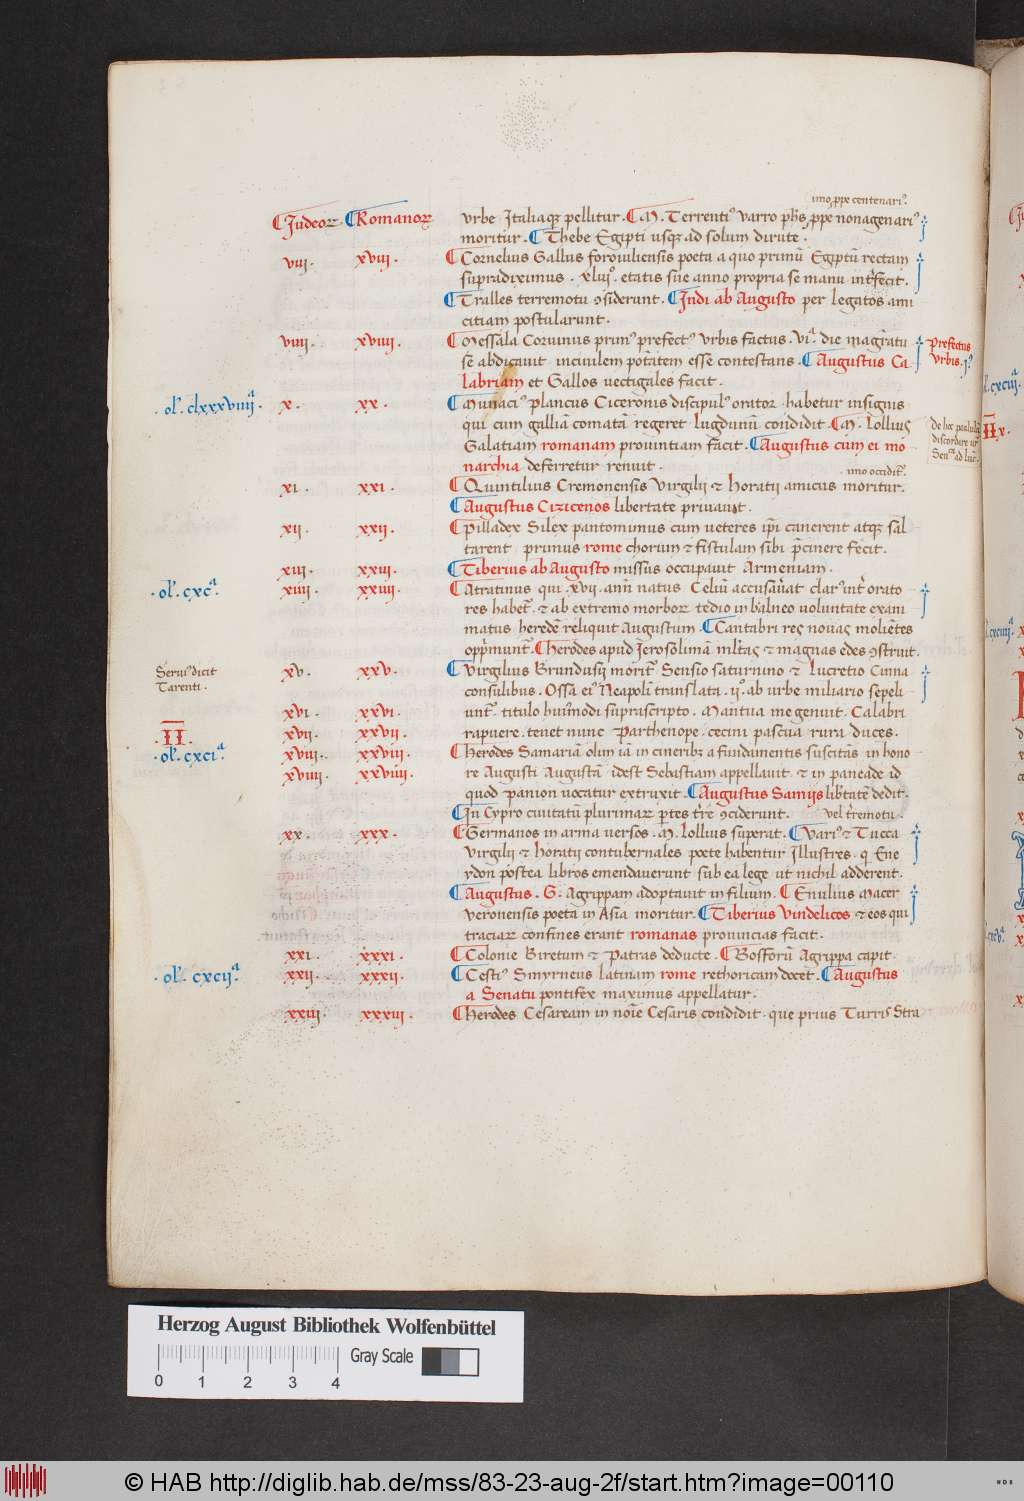 imo ꝓpe centenari⁹.
Judeoꝝ. Romanoꝝ urbe Italiaqꝫ pellitur. M. Terrenti⁹ varro phs ꝓpe nonagenari⁹
moritur. Thebe Egipti usqꝫ ad solum dirute.
viii. xviii. Cornelius Gallus foroiuliensis poeta a quo primū Egiptū rectam
supradiximus. xliii°. etatis sue anno propria se manu int̄fecit.
Tralles terremotu ꝯsiderunt. Indi ab Augusto per legatos ami
citiam postularunt.
viiii. xviiii. Messala Corvinus prim⁹ prefect⁹ urbis factus. vi.ª die magr̄atu Prefectus
se abdicavit incivilem potātem esse contestans. Augustus Ca- Urbis. j⁹.
labriam et Gallos vectigales facit.
ol'. clxxxviiii.ª x. xx. Munaci⁹ plancus Ciceronis discipul⁹ orator habetur insignis
qui cum galliā comatā regeret lugdunū condidit. M. Lollius
Galatiam romanam provintiam facit. Augustus cum ei mo-
narchia deferretur renuit.
imo occidit⁹.
xi. xxi. Quintilius Cremonensis Virgilii & Horatii amicus moritur.
Augustus Cizicenos libertate privavit.
xii. xxii. Pilladex Silex pantomimus cum veteres ip̄i canerent atqꝫ sal
tarent primus rome chorum & fistulam sibi p̄cinere fecit.
xiii. xxiii. Tiberius ab Augusto missus occupavit Armeniam.
ol'. cxc.ª xiiii. xxiiii. Atratinus qui. xvii. ann̄ natus Celiū accusav̄at clar⁹ int̄ orato
res habet̄. & ab extremo morboꝝ tedio in balneo voluntate exani
matus heredē reliquit Augustum. Cantabri res novas moliētes
opp̄munt̄. Herodes apud Jerosolimā ml̄tas & magnas edes ꝯstruit.
Servi⁹ dicit
Tarenti.
xv. xxv. Virgilius Brundusii morit̄ Sensio saturnino & Lucretio Cinna
consulibus. Ossa ei⁹ Neapoli translata. ii°. ab urbe miliario sepeli
xvi. xxvi. unt̄. titulo hui⁹modi suprascripto. Mantua me genuit. Calabri
II. xvii. xxvii. rapuere. tenet nunc Parthenope. cecini pascua rura duces.
ol'. cxci.ª xviii. xxviii. Herodes Samariā olim iā in cineribꝫ a fundamentis suscitās in hono
xviiii. xxviiii. re Augusti Augustā idest Sebastiam appellavit. & in paneade id
quod Panion vocatur extruxit. Augustus Samiis lib̄tatē dedit.
In Cypro civitatū plurimaꝝ ꝑtes t̄re ꝯciderunt. vel t̄remotu.
xx. xxx. Germanos in arma versos. M. Lollius superat. Vari⁹ & Tucca
Virgilii & Horatii contubernales poete habentur Illustres. q̄ Ene
ydon postea libros emendaverunt sub ea lege ut nichil adderent.
Augustus. G. Agrippam adoptavit in filium. Emilius Macer
veronensis poeta in Asia moritur. Tiberius Vindelicos & eos qui
traciaꝝ confines erant romanas provincias facit.
xxi. xxxi. Colonie Biretum & Patras deducte. Bosforū Agrippa capit.
ol'. cxcii.ª xxii. xxxii. Cesti⁹ Smyrneus latinam rome rethoricam docet. Augustus
a Senatu pontifex maximus appellatur.
xxiii. xxxiii. Herodes Cesaream in noīe Cesaris condidit. que prius Turris Stra
Herzog August Bibliothek Wolfenbüttel
Gray Scale
0 1 2 3 4
© HAB http://diglib.hab.de/mss/83-23-aug-2f/start.htm?image=00110